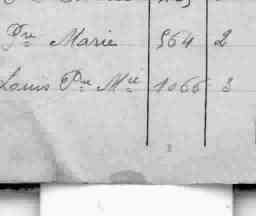 Pre Marie 564 2
Louis Pre Mie 1066 3